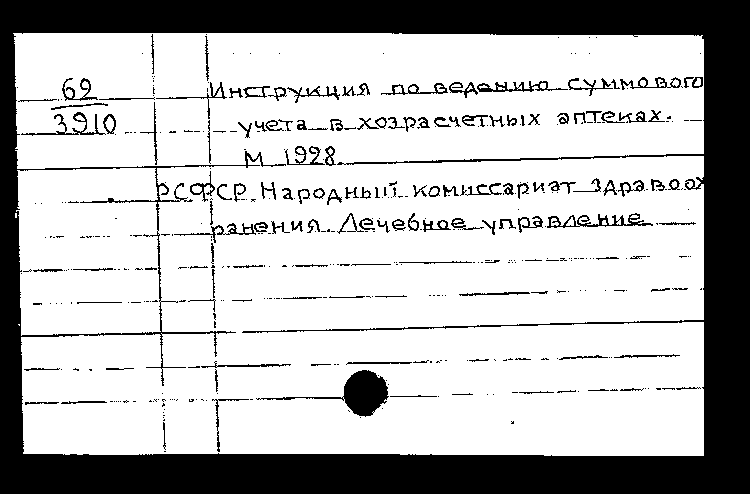 69
3910
Инструкция по ведению суммового
учета в хозрасчетных аптеках.
М 1928.
РСФСР. Народный комиссариат здравоох
ранения. Лечебное управление